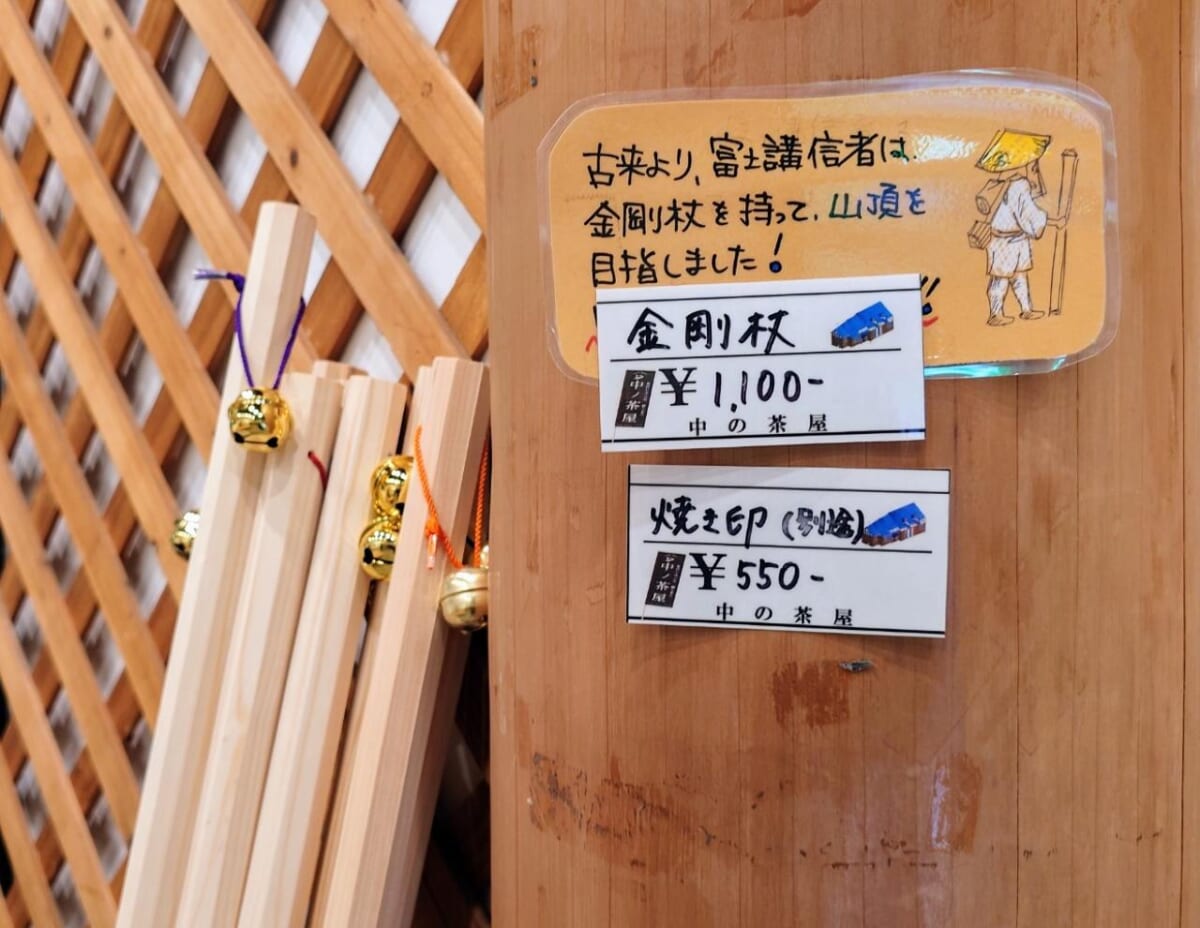 古来より、富士講信者は、
金剛杖を持って、山頂を
目指しました!
金剛杖
中ノ茶屋
¥1,100-
中の茶屋
焼き印(別途)
中ノ茶屋
¥550-
中の茶屋